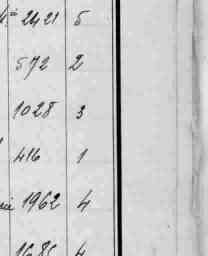 2421 5
572 2
1028 3
416 1
1962 4
1685 4